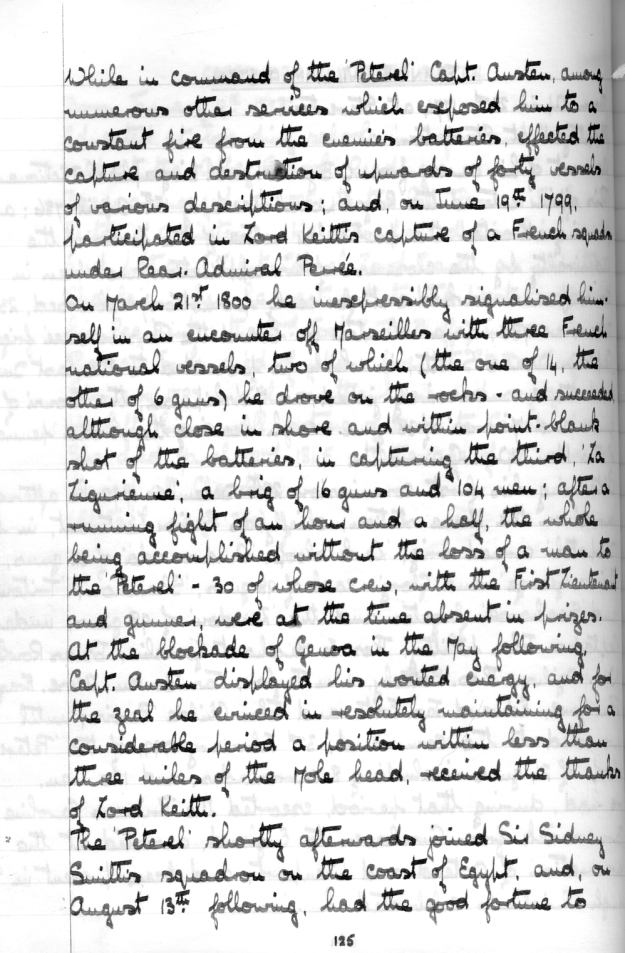 While in command of the 'Peterel' Capt. Austen, among
numerous other services which exposed him to a
constant fire from the enemie's batteries, effected the
capture and destruction of upwards of forty vessels
of various descriptions; and, on June 19th 1799,
participated in Lord Keith's capture of a French squadn
under Rear. Admiral Perrée.
On March 21st 1800 he inexpressibly signalised him-
self in an encounter off Marseilles with three French
national vessels, two of which (the one of 14, the
other of 6 guns) he drove on the rocks - and succeeded
although close in shore and within point-blank
shot of the batteries, in capturing the third, 'La
Ligurienne', a brig of 16 guns and 104 men; after a
running fight of an hour and a half, the whole
being accomplished without the loss of a man to
the 'Peterel' - 30 of whose crew, with the First Lieutenant
and gunner, were at the time absent in prizes.
At the blockade of Genoa in the May following,
Capt. Austen displayed his wonted energy, and for
the zeal he evinced in resolutely maintaining for a
considerable period a position within less than
three miles of the Mole head, received the thanks
of Lord Keith.
The 'Peterel' shortly afterwards joined Sir Sidney
Smith's squadron on the coast of Egypt, and, on
August 13th following, had the good fortune to
125